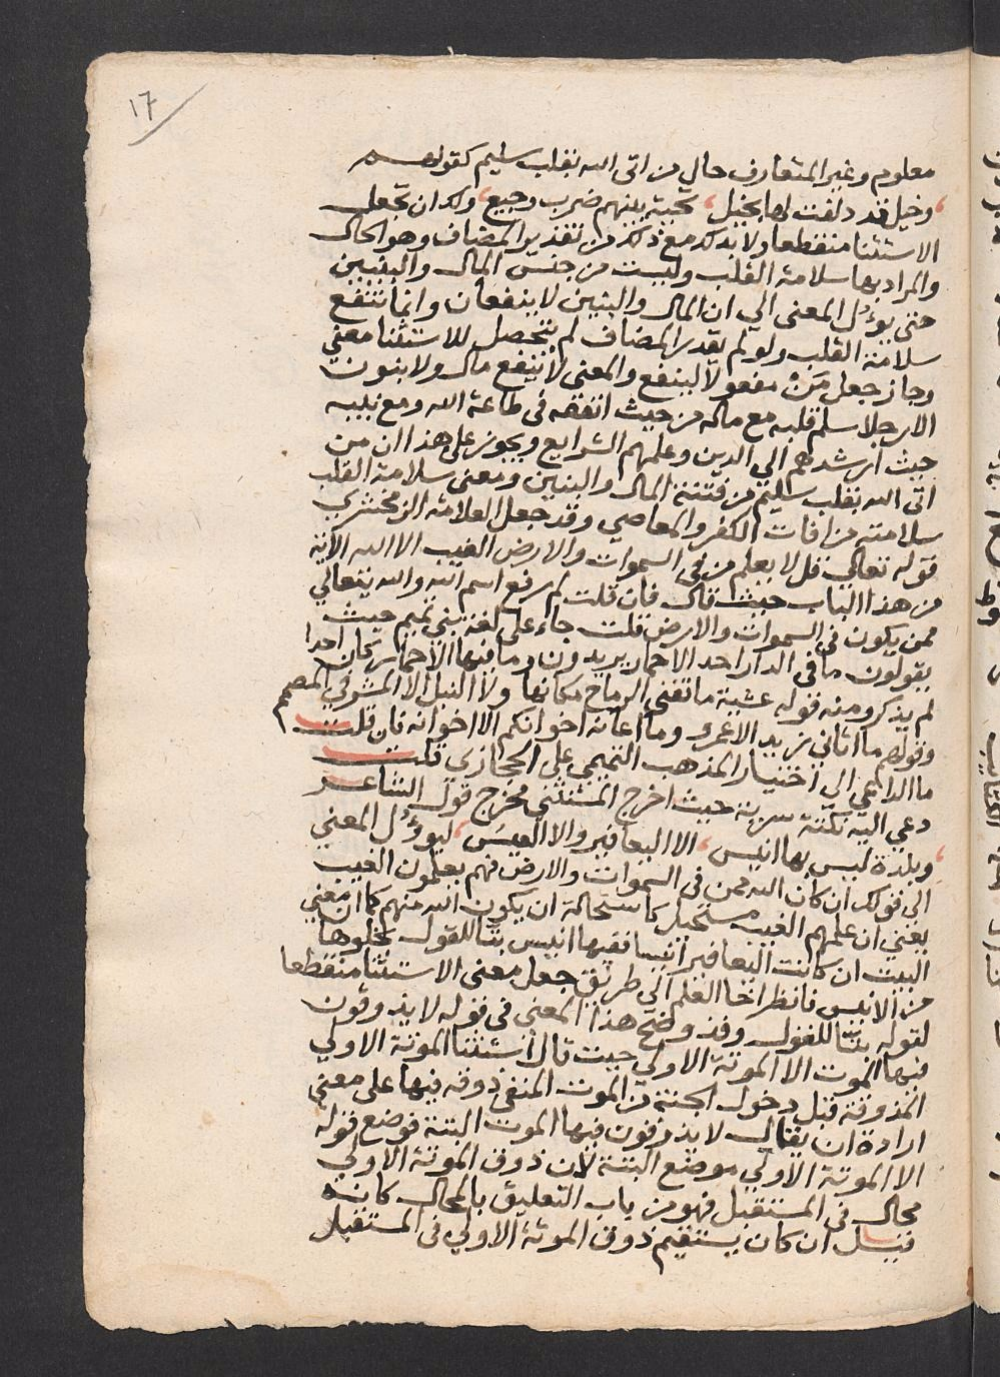 ١٦
معلوم وغير المتعارف حال من اتى الله بقلب سليم كقولهم
وخيل قد دلفت لها بخيل تحية بينهم ضرب وجيع ولك ان تجعل
الاستثنا منقطعا ولا بد لك مع ذلك من تقدير المضاف وهو الحال
والمراد بها سلامة القلب وليست من جنس المال والبنين
حتى يؤل المعنى الي ان المال والبنين لا ينفعان وانما تنفع
سلامة القلب ولو لم يقدر المضاف لم يتحصل للاستثنا معني
وجاز جعل مَنْ مفعولا لينفع والمعنى لا ينفع مال ولا بنون
الا رجلا سلم قلبه مع ماله من حيث انفقه في طاعة الله ومع بنيه
حيث ارشدهم الي الدين وعلمهم الشرايع ويجوز على هذا ان من
اتى الله بقلب سليم من فتنة المال والبنين ومعنى سلامة القلب
سلامته من افات الكفر والمعاصي وقد جعل العلامة الزمخشري
قوله تعالي قل لا يعلم من في السموات والارض الغيب الا الله الآية
من هذا الباب حيث قال فان قلت لم رفع اسم الله والله يتعالي
ممن يكون في السموات والارض قلت جاء على لغة بني تميم حيث
يقولون ما في الدار احد الا حمار يريدون ما فيها الا حمار كان احدا
لم يذكر ومنه قوله عشية ما تغني الرماح مكانها ولا النبل الا المشرفي المصمم
وقولهم ما اتاني زيد الا عمرو وما اعانه اخوانكم الا اخوانه فان قلت
ما الداعي الي اختيار المذهب التميمي على الحجازي قلت
دعي اليه نكتة سرية حيث اخرج المستثني مخرج قول الشاعر
وبلدة ليس بها انيس الا اليعافير والا العيس ليوؤل المعني
الي قولك ان كان الله ممن في السموات والارض فهم يعلمون الغيب
يعني ان علمهم الغيب مستحيل كاستحالة ان يكون الله منهم كما ان معني
البيت ان كانت اليعافير انيسا ففيها انيس بتا للقول بخلوها
من الانيس فانظر اخا العلم الي طريق جعل معنى الاستثنا منقطعا
لقوله بتا للقول وقد وضح هذا المعنى في قوله لا يذوقون
فيها الموت الا الموتة الاولي حيث قال استثنا الموتة الاولي
المذوقة قبل دخول الجنة من الموت المنفي ذوقه فيها على معنى
ارادة ان يقال لا يذوقون فيها الموت البتة فوضع قوله
الا الموتة الاولي موضع البتة لان ذوق الموتة الاولي
محال في المستقبل فهو من باب التعليق بالمحال كانه
قيل ان كان يستقيم ذوق الموتة الاولي في المستقبل